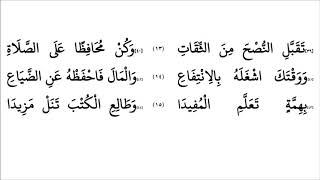 تَقَبَّلِ النُّصْحَ مِنَ الثِّقَاتِ (١٣) وَكُنْ مُحَافِظًا عَلَى الصَّلَاةِ
وَوَقْتَكَ اشْغَلْهُ بِالِانْتِفَاعِ (١٤) وَالْمَالَ فَاحْفَظْهُ عَنِ الضَّيَاعِ
بِهِمَّةٍ تَعَلَّمِ الْمُفِيدَا (١٥) وَطَالِعِ الْكُتْبَ تَنَلْ مَزِيدَا